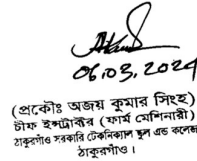 06.03.2024
(প্রকৌঃ অজয় কুমার সিংহ)
চীফ ইন্সট্রাক্টর (ফার্ম মেশিনারী)
ঠাকুরগাঁও সরকারি টেকনিক্যাল স্কুল এন্ড কলেজ
ঠাকুরগাঁও।